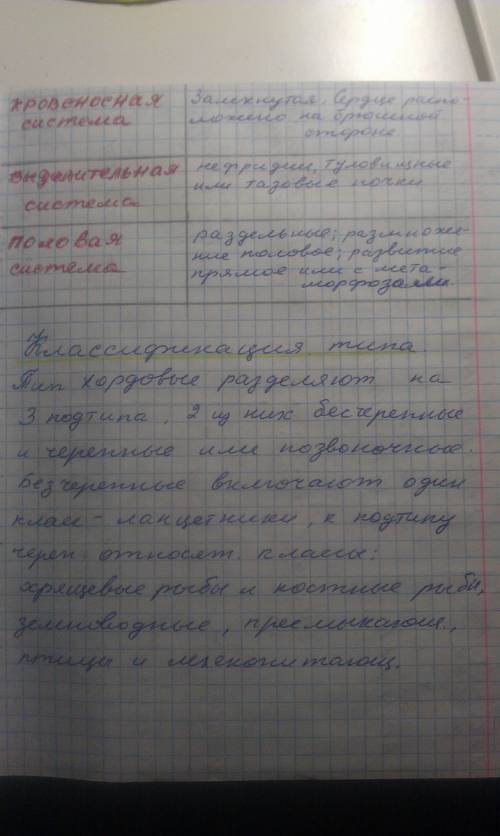 кровеносная
система
Замкнутая. Сердце распо-
ложено на брюшной
стороне
выделительная
система
нефридии, туловищные
или тазовые почки
половая
система
раздельные; размноже-
ние половое; развитие
прямое или с мета-
морфозами.
Классификация типа.
Тип хордовые разделяют на
3 подтипа, 2 из них бесчерепные
и черепные или позвоночные.
Безчерепные включают один
класс - ланцетники, к подтипу
череп. относят классы:
хрящевые рыбы и костные рыбы,
земноводные, пресмыкающ.,
птицы и млекопитающ.